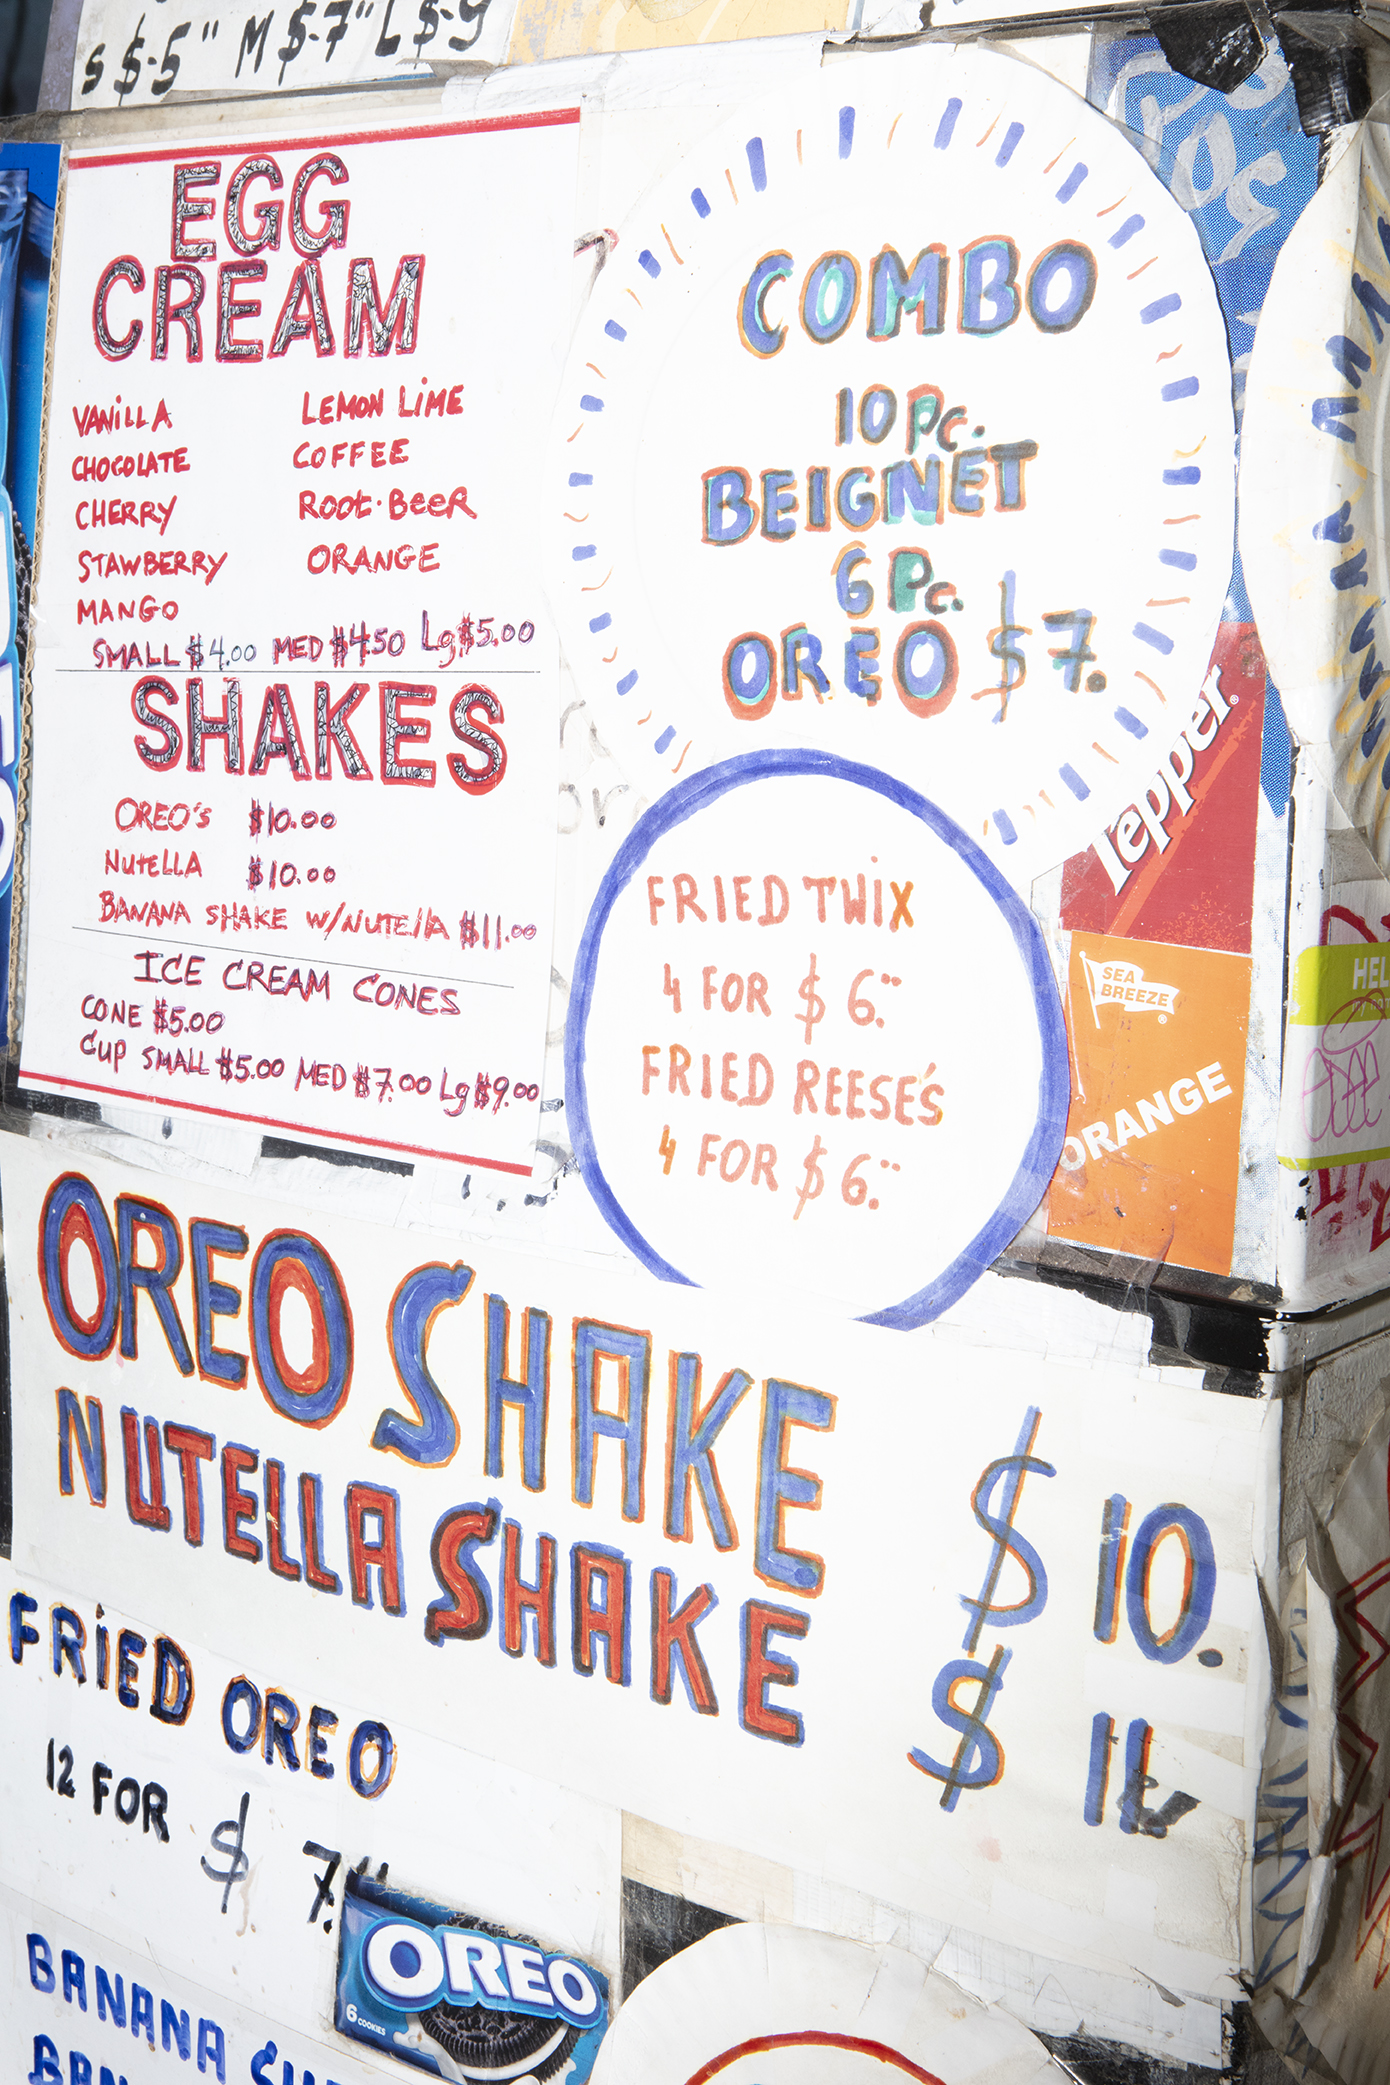 S $.5" M $.7" L $.9
EGG
CREAM
VANILLA LEMON LIME
CHOCOLATE COFFEE
CHERRY ROOT·BEER
STAWBERRY ORANGE
MANGO
SMALL $4.00 MED $4.50 Lg $5.00
SHAKES
OREO'S $10.00
NUTELLA $10.00
BANANA SHAKE W/NUTELLA $11.00
ICE CREAM CONES
CONE $5.00
CUP SMALL $5.00 MED $7.00 Lg $9.00
COMBO
10 Pc.
BEIGNET
6 Pc.
OREO $7.
FRIED TWIX
4 FOR $6.
FRIED REESE'S
4 FOR $6.
Pepper
SEA
BREEZE
ORANGE
HEL
OREO SHAKE $10.
NUTELLA SHAKE $11
FRIED OREO
12 FOR $7."
OREO
6 COOKIES
BANANA